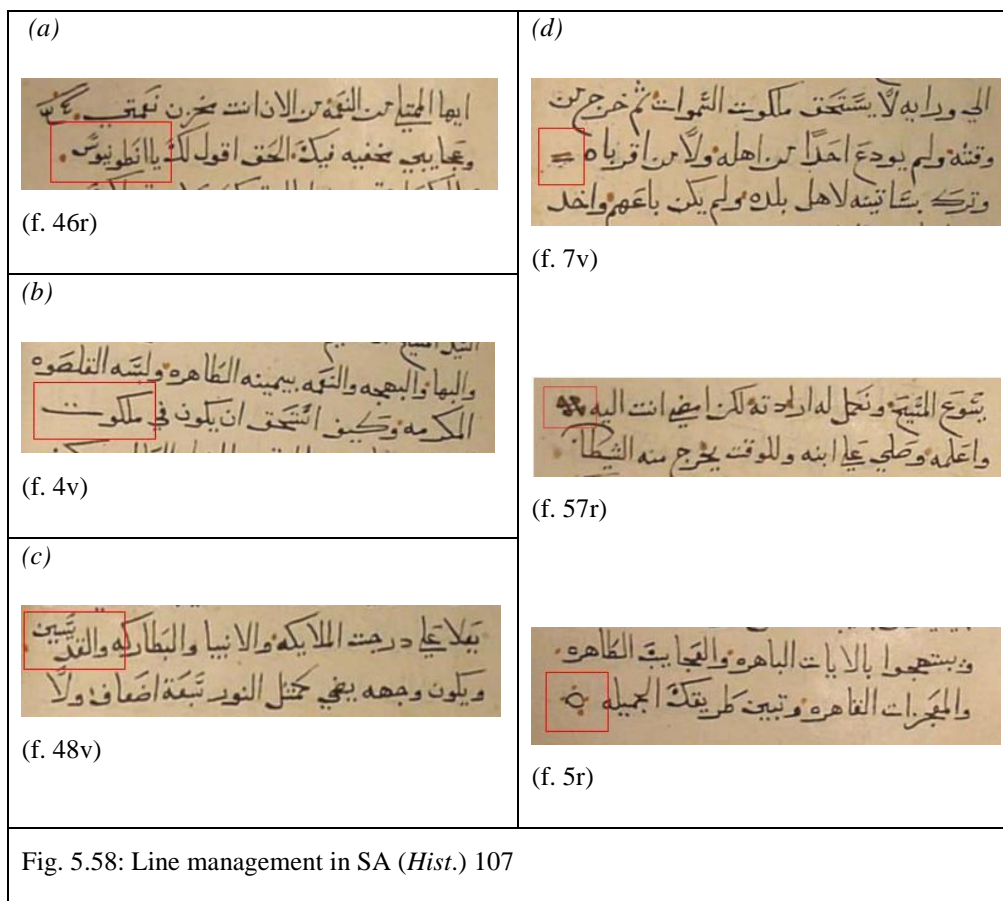 (a)
ايها الممتلى من النعمه من الان انت مخزن نعمتي
وعجايبي مخفيه فيك الحق اقول لك يا انطونيوس
(f. 46r)
(b)
والبها والبهجه والنعمه بيمينه الطاهره ولبسه القلصوه
المكرمه وكيف استحق ان يكون في ملكوت
(f. 4v)
(c)
بعلا على درجت الملايكه والانبيا والبطاركه والقديسين
ويكون وجهه يضي كمثل النور سبعة اضعاف ولا
(f. 48v)
(d)
الى ورايه لا يستحق ملكوت السموات ثم خرج من
وقته ولم يودع احدا من اهله ولا من اقرباه =
وترك بساتينه لاهل بلده ولم يكن باعهم واخد
(f. 7v)
يسوع المسيح ونحل له ارادته لكن امضي انت اليه
واعلمه وصلي على ابنه وللوقت يخرج منه الشيطان
(f. 57r)
ويبتهجوا بالايات الباهره والعجايب الطاهره
والمعجزات القاهره وتبين طريقك الجميله
(f. 5r)
Fig. 5.58: Line management in SA (Hist.) 107